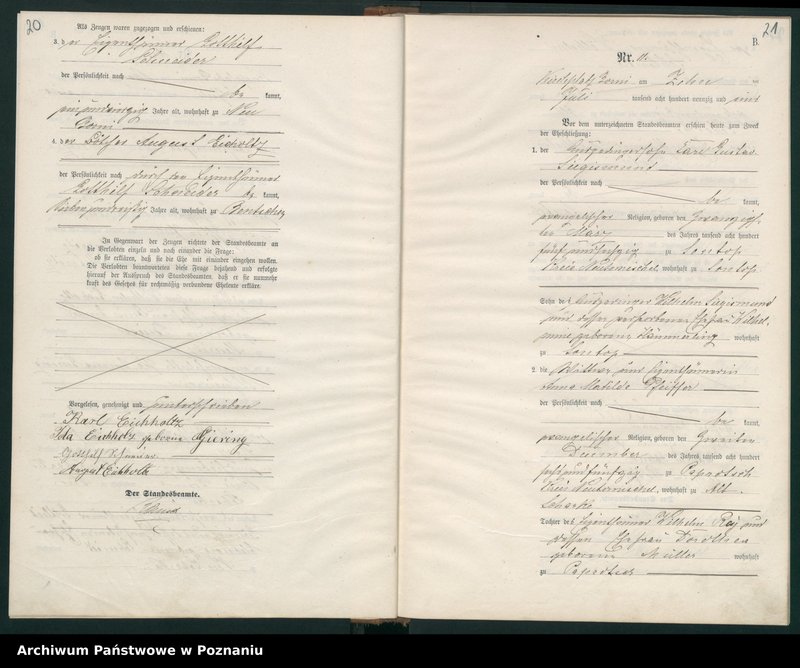 20
Als Zeugen waren zugezogen und erschienen:
3. der Eigenthümer Gotthilf
Schneider
der Persönlichkeit nach
be kannt,
Jahre alt, wohnhaft zu Neu
Borui
4. der August Eichholtz
der Persönlichkeit nach durch den Eigenthümer
Gotthilf Schneider be kannt,
Jahre alt, wohnhaft zu Bentschen
In Gegenwart der Zeugen richtete der Standesbeamte an
die Verlobten einzeln und nach einander die Frage:
ob sie erklären, daß sie die Ehe mit einander eingehen wollen.
Die Verlobten beantworteten diese Frage bejahend und erfolgte
hierauf der Ausspruch des Standesbeamten, daß er sie nunmehr
kraft des Gesetzes für rechtmäßig verbundene Eheleute erkläre.
Vorgelesen, genehmigt und unterschrieben
Karl Eichholtz
Ida Eichholz geborene Giering
August Eichholtz
Der Standesbeamte.
21
B.
Nr. 11.
Borui am Zehn ten
Juli tausend acht hundert neunzig und eins
Vor dem unterzeichneten Standesbeamten erschien heute zum Zweck
der Eheschließung:
1. der Carl Gustav
Siegismund
der Persönlichkeit nach
be kannt,
evangelischer Religion, geboren den zwanzigs
ten März des Jahres tausend acht hundert
zu Sontop
Kreis Neutomischel, wohnhaft zu Sontop
Sohn des Wilhelm Siegismund
und dessen verstorbenen Ehefrau Wilhel
mine geborene wohnhaft
zu Sontop
2. die Wittwe und Eigenthümerin
Anna Mathilde Pfeiffer
der Persönlichkeit nach
be kannt,
evangelischer Religion, geboren den zweiten
December des Jahres tausend acht hundert
sechs und fünfzig zu Paprotsch
Kreis Neutomischel, wohnhaft zu Alt
Scharke
Tochter des Eigenthümer Wilhelm und
dessen Ehefrau Dorothea
geborene Müller wohnhaft
zu Paprotsch
Archiwum Państwowe w Poznaniu